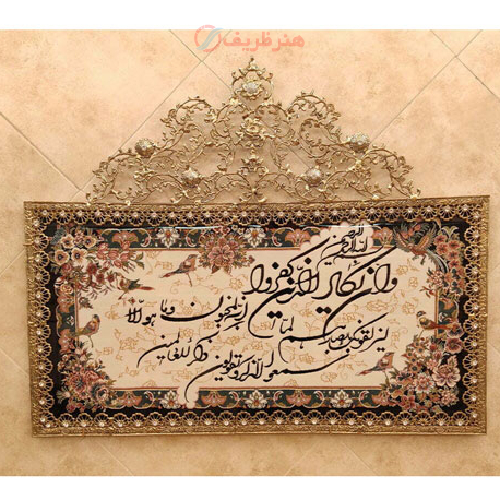 هنر ظریف
بسم الله الرحمن الرحیم
وان یکاد الذین کفروا
لیزلقونک بابصارهم لما
سمعوا الذکر ویقولون
انه لمجنون وما هو الا
ذکر للعالمین